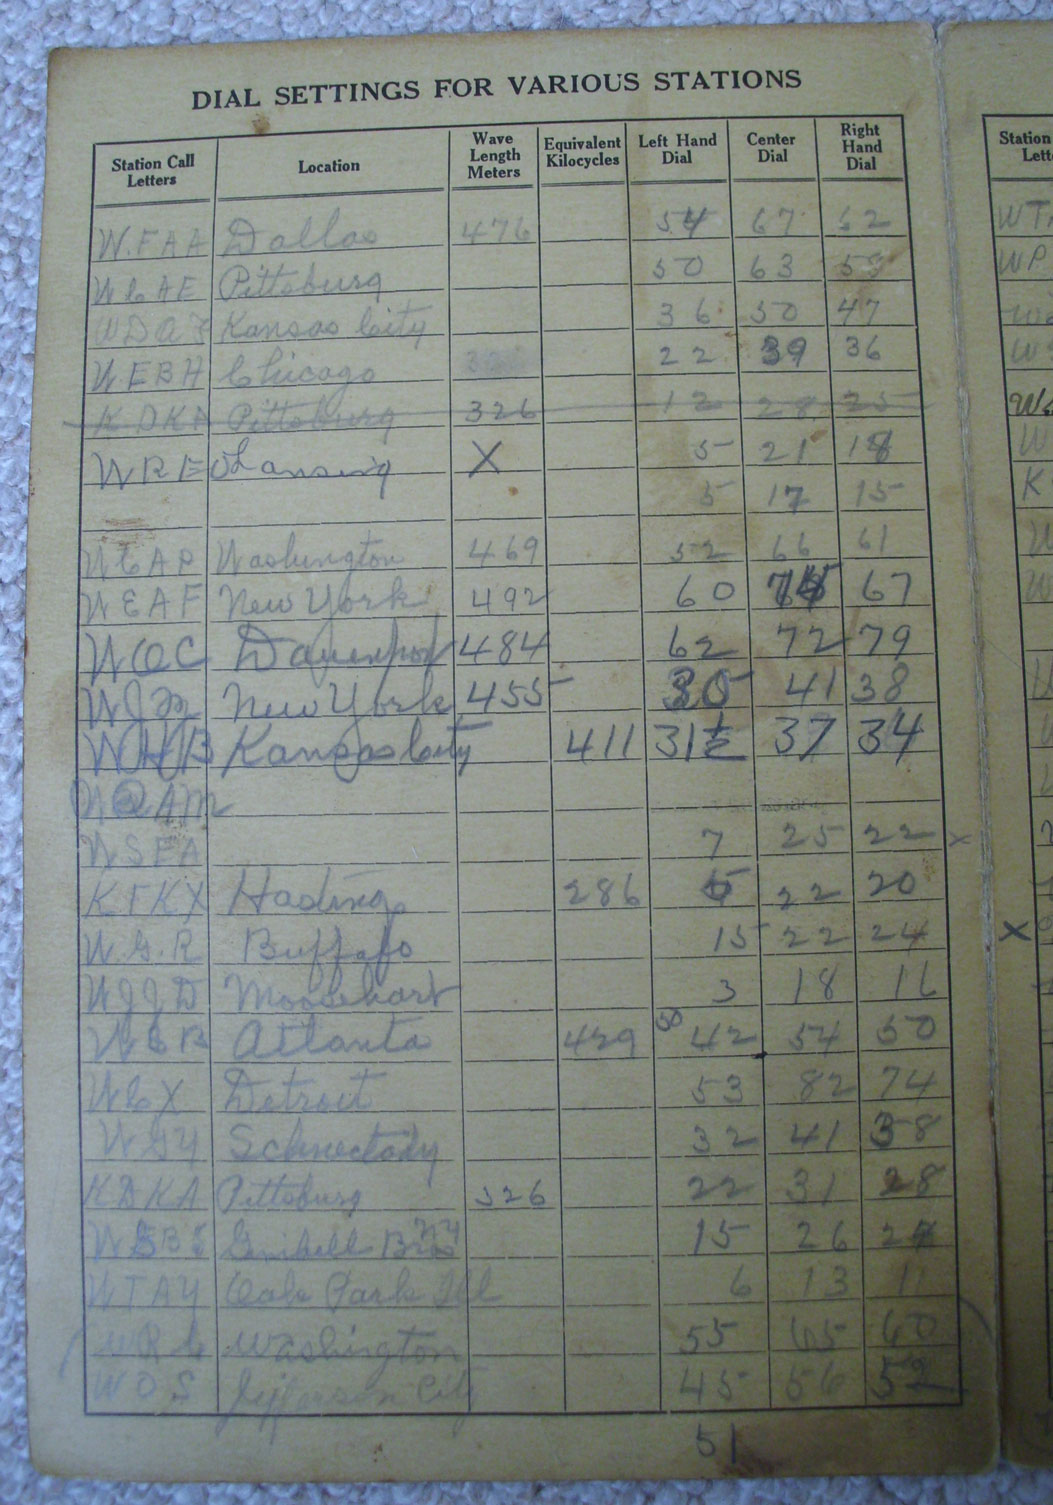 DIAL SETTINGS FOR VARIOUS STATIONS
Station Call Letters Location Wave Length Meters Equivalent Kilocycles Left Hand Dial Center Dial Right Hand Dial
W.FAA Dallas 476 54 67 62
WCAE Pittsburg 50 63
WDAF Kansas City 36 50 47
W.EBH Chicago 22 39 36
K.DKA Pittsburg 326 12 28 25
WREO Lansing X 5 21 18
5 17 15
WCAP Washington 469 52 66 61
WEAF New York 492 60 67
WOC Davenport 484 62 72 79
New York 455 41 38
WHB Kansas City 411 31½ 37 34
WQAM
WSEA 7 25 22 x
KFKX Hasting 286 22 20
W.G.R Buffalo 15 22 24
WJJD Mooseheart 3 18 16
WSB Atlanta 429 50 42 54 50
WCX Detroit 53 82 74
WGY Schnectady 32 41 38
KDKA Pittsburg 326 22 31 28
15 26
WTAY Oak Park Ill 6 13 11
WRC Washington 55 65 60
WOS Jefferson City 45 56 52
51
Station
Lett
WT
WP
K
X